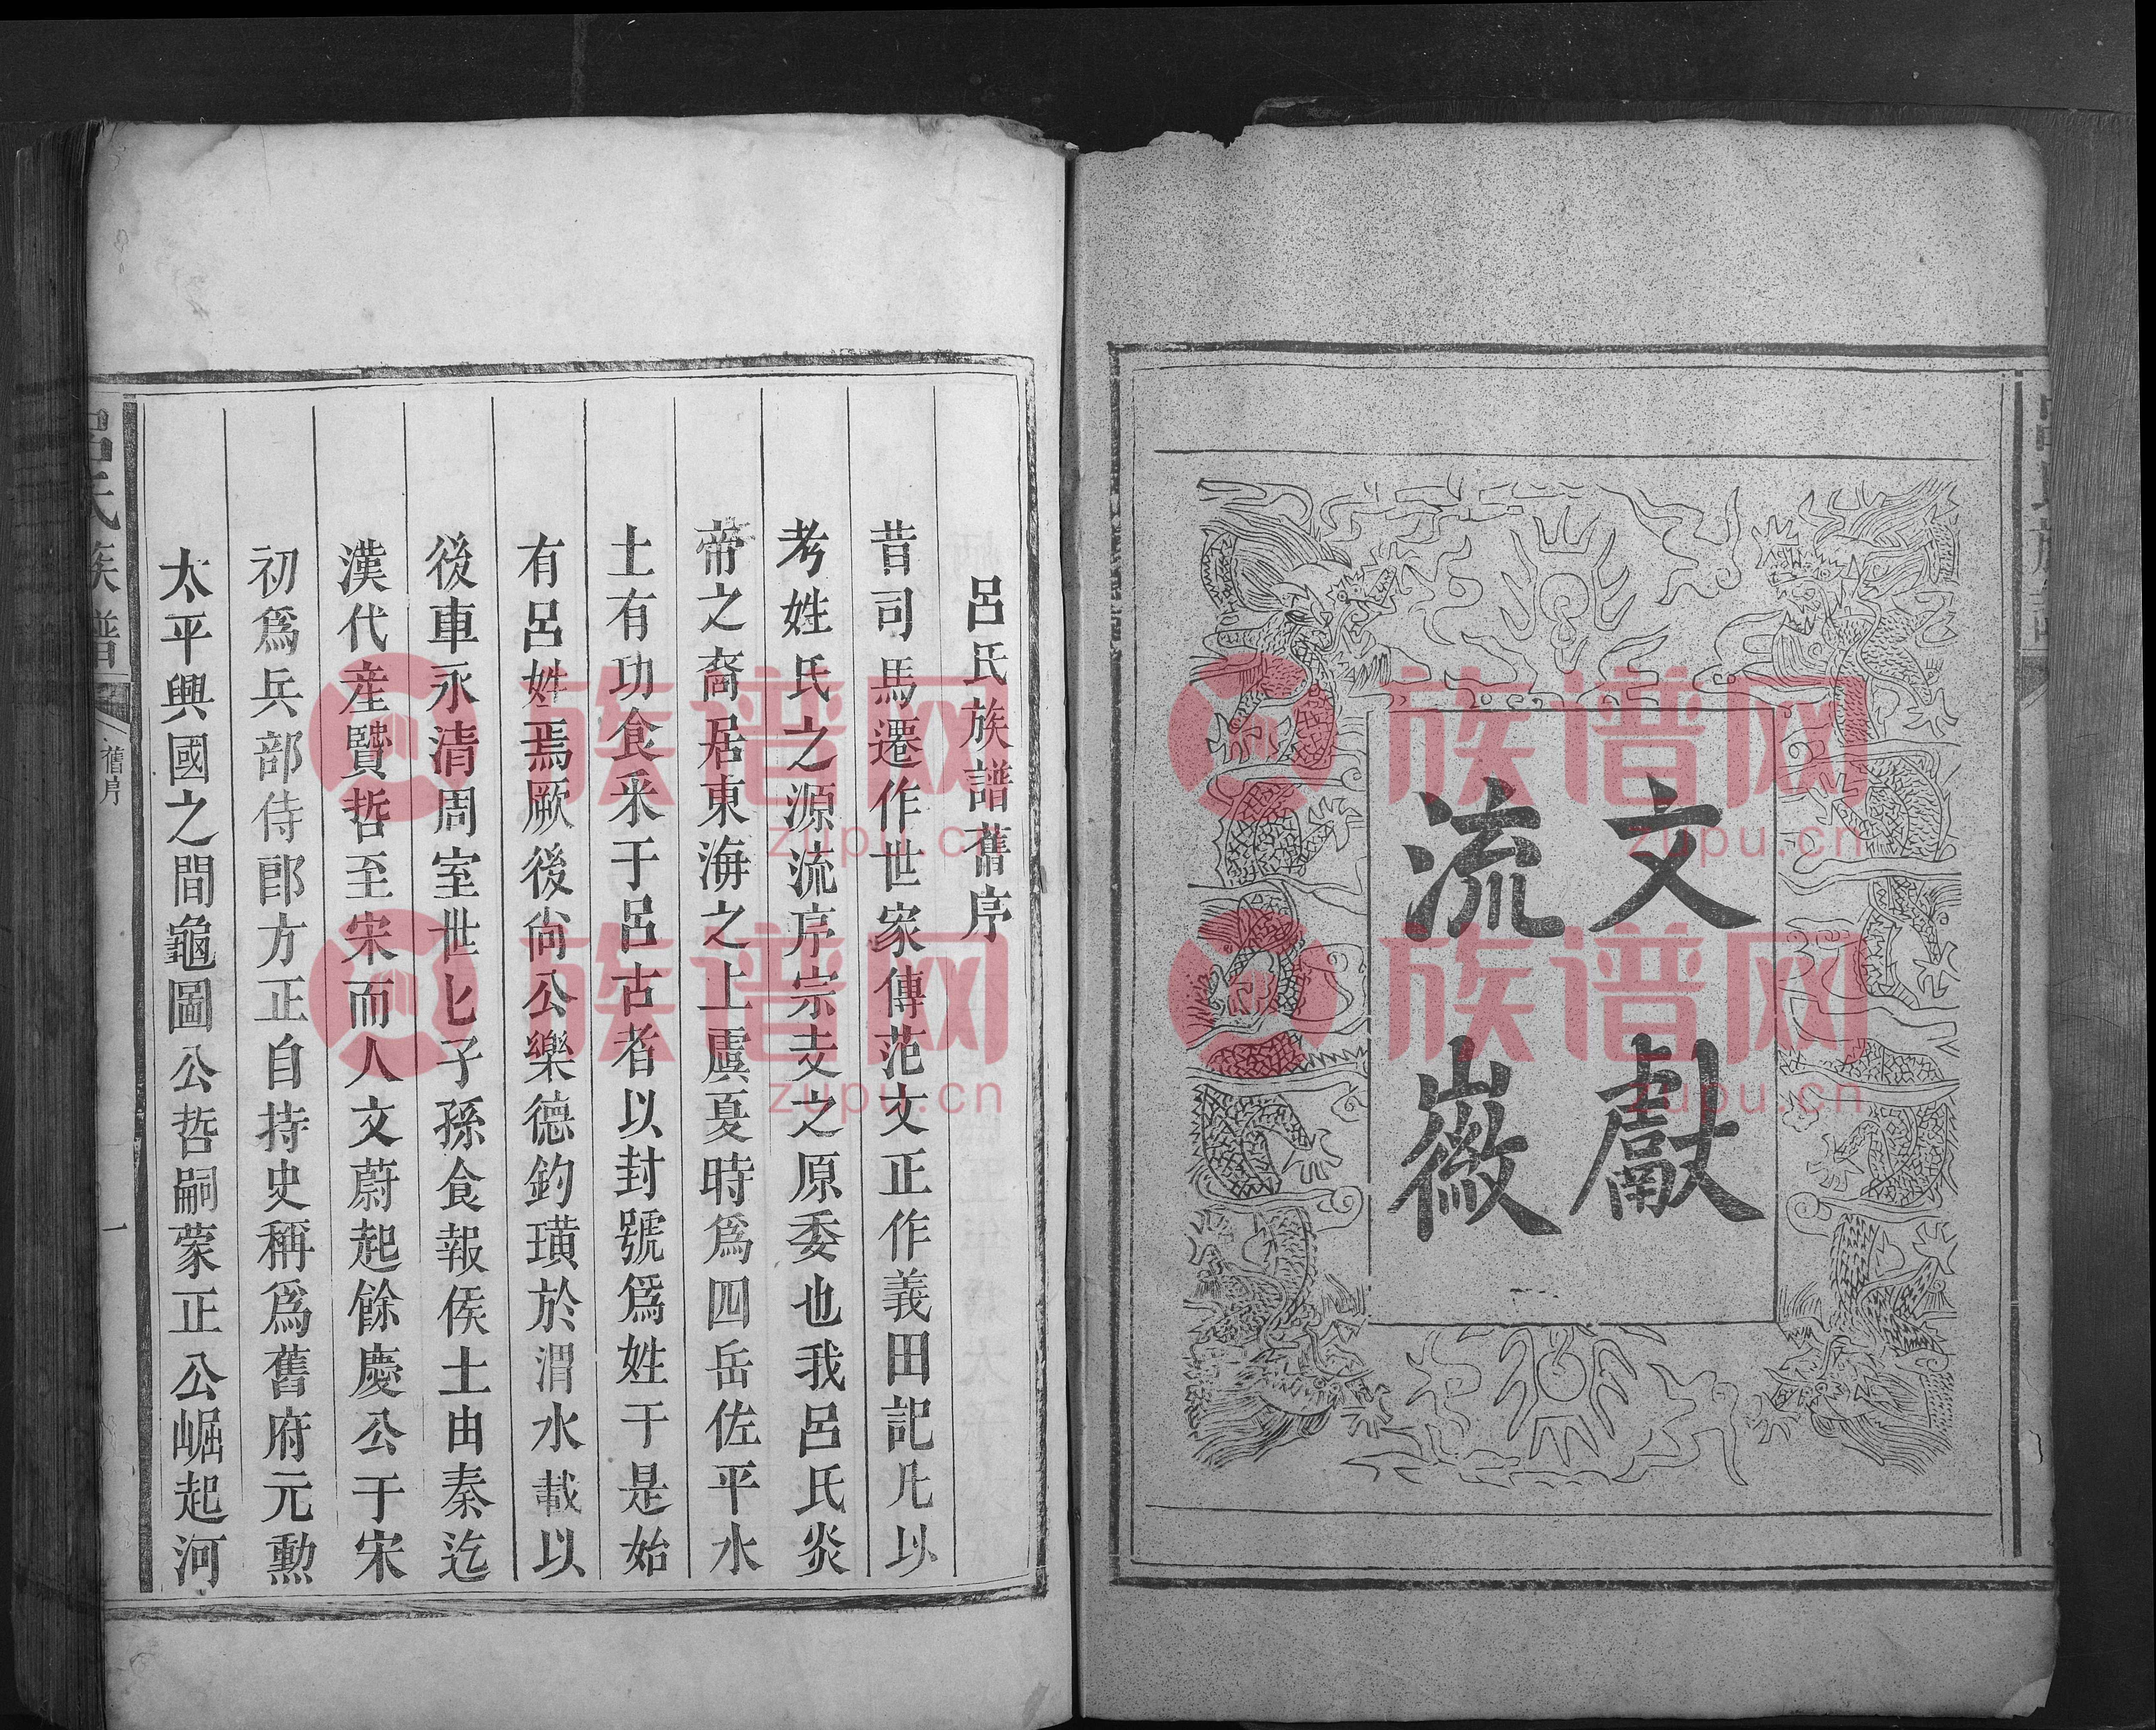 文獻
流徽
呂氏族譜
呂氏族譜舊序
昔司馬遷作世家傳范文正作義田記凡以
考姓氏之源流序宗支之原委也我呂氏炎
帝之裔居東海之上虞夏時爲四岳佐平水
土有功食采于呂古者以封號爲姓于是始
有呂姓焉厥後尚公樂德釣璜於渭水載以
後車永清周室世匕子孫食報侯土由秦迄
漢代産賢哲至宋而人文蔚起餘慶公于宋
初爲兵部侍郎方正自持史稱爲舊府元勳
太平興國之間龜圖公哲嗣蒙正公崛起河
呂氏族譜
舊序
一
族谱网
zupu.cn
族谱网
zupu.cn
族谱网
zupu.cn
族谱网
zupu.cn